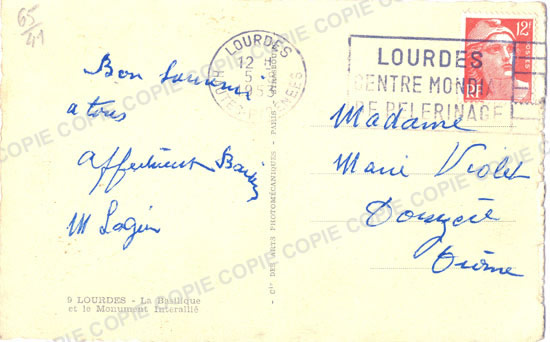 65
41
LOURDES
12 H
5
HTES-PYRÉNÉES
12F
RF
LOURDES
CENTRE MONDIAL
DE PELERINAGE
Bon Souvenir
a tous
affectueux Baisers
M
Madame
Marie Violet
Drôme
CIE DES ARTS PHOTOMÉCANIQUES - PARIS - STRASBOURG
9 LOURDES - La Basilique
et le Monument Interallié
COPIE COPIE COPIE COPIE